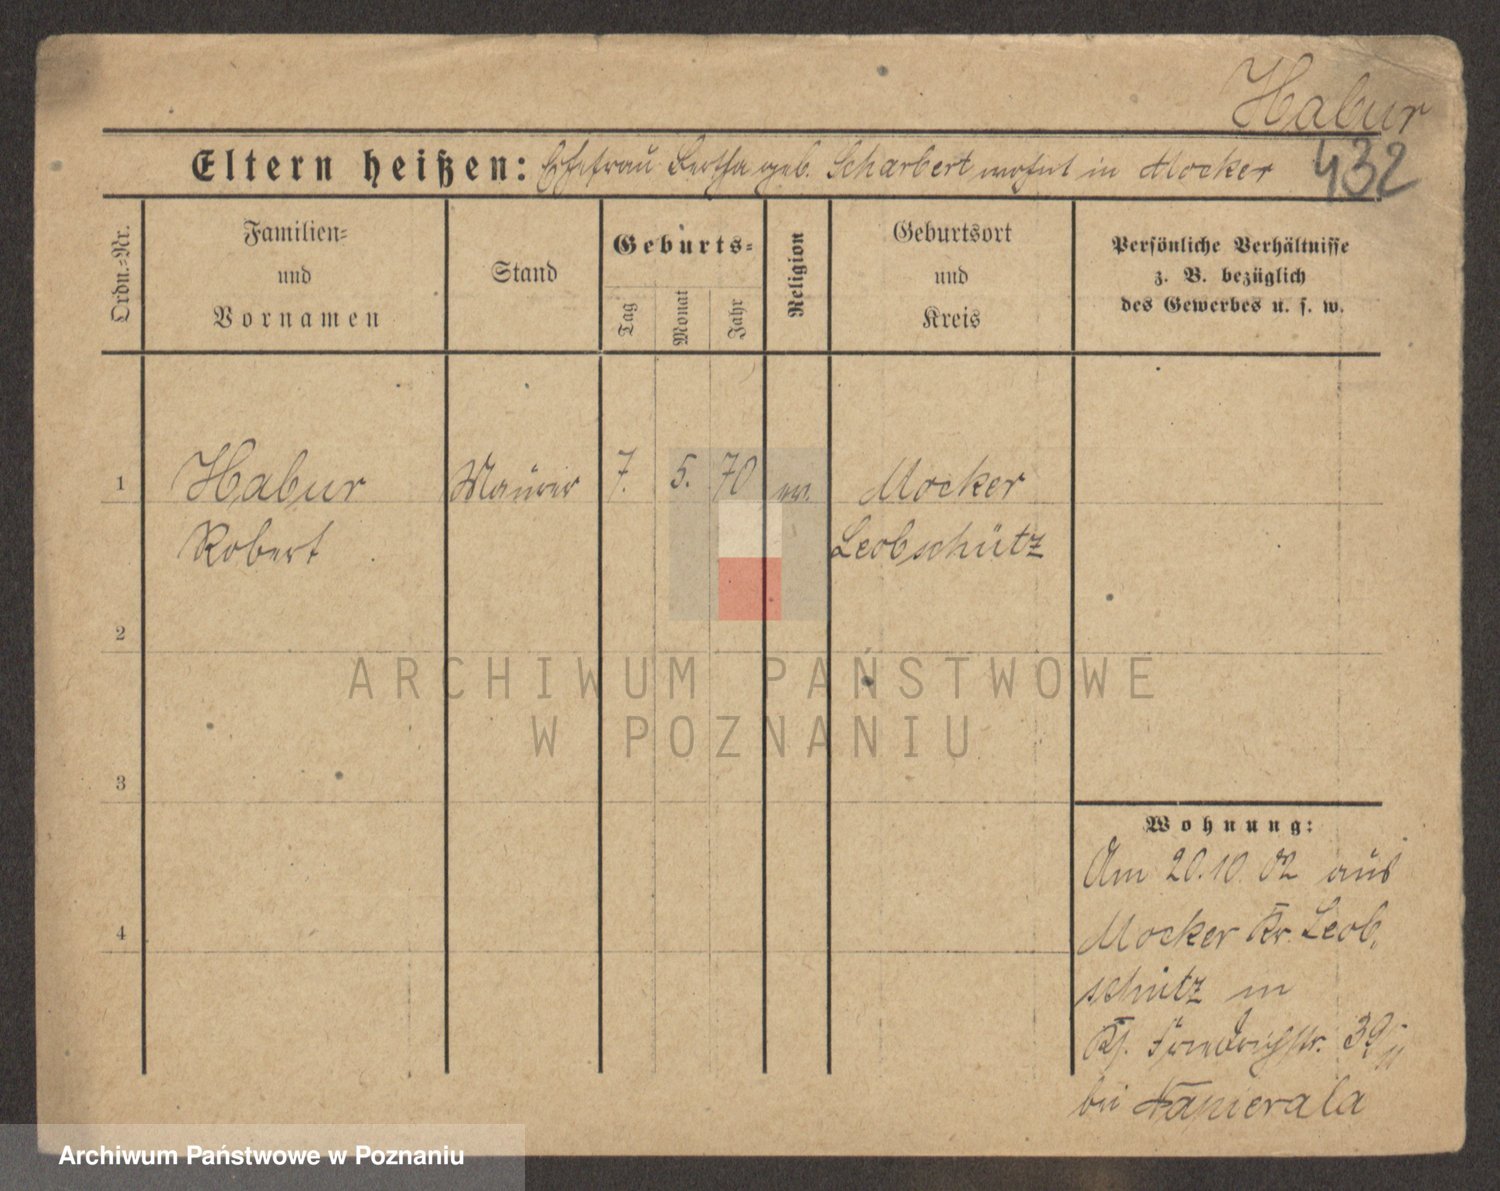 Habur
432
Eltern heißen: Ehefrau Bertha geb. Scharbert wohnt in Mocker
Ordn.-Nr.
Familien-
und
Vornamen
Stand
Geburts-
Tag
Monat
Jahr
Religion
Geburtsort
und
Kreis
Persönliche Verhältnisse
z. B. bezüglich
des Gewerbes u. s. w.
1 Habur Maurer 7. 5. 70 Mocker
Robert Leobschütz
2
3
4
ARCHIWUM PAŃSTWOWE
W POZNANIU
Wohnung:
Am 20.10.02 aus
Mocker Kr. Leob.
schütz in
Friedrichstr. 39
bei Napierala
Archiwum Państwowe w Poznaniu